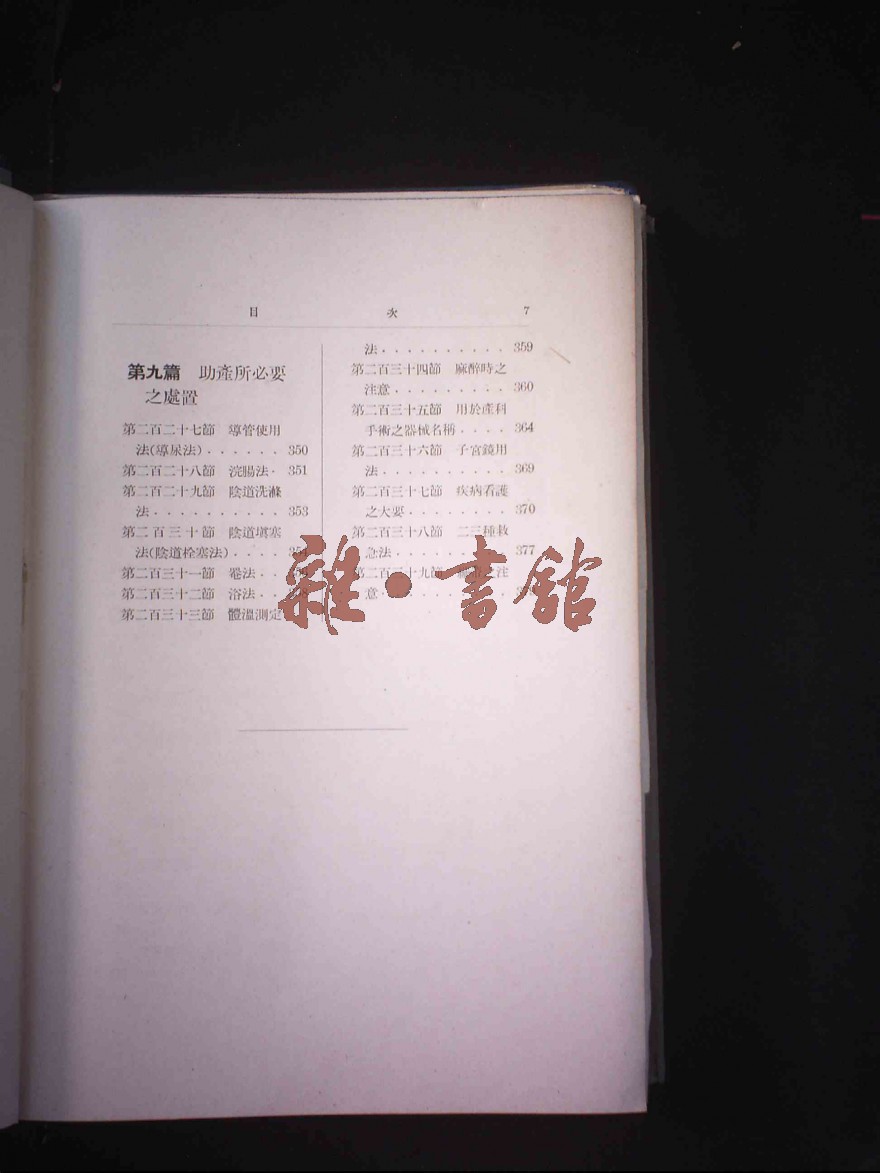 目 次 7
第九篇 助產所必要
之處置
第二百二十七節 導管使用
法(導尿法)······350
第二百二十八節 浣腸法·351
第二百二十九節 陰道洗滌
法··········353
第二百三十節 陰道塡塞
法(陰道栓塞法)····
第二百三十一節 罨法··
第二百三十二節 浴法··
第二百三十三節 體溫測定
法··········359
第二百三十四節 麻醉時之
注意·········360
第二百三十五節 用於產科
手術之器械名稱····364
第二百三十六節 子宮鏡用
法··········369
第二百三十七節 疾病看護
之大要········370
第二百三十八節 二三種救
急法·········377
第二百三十九節 之注
意··········
雜·書館